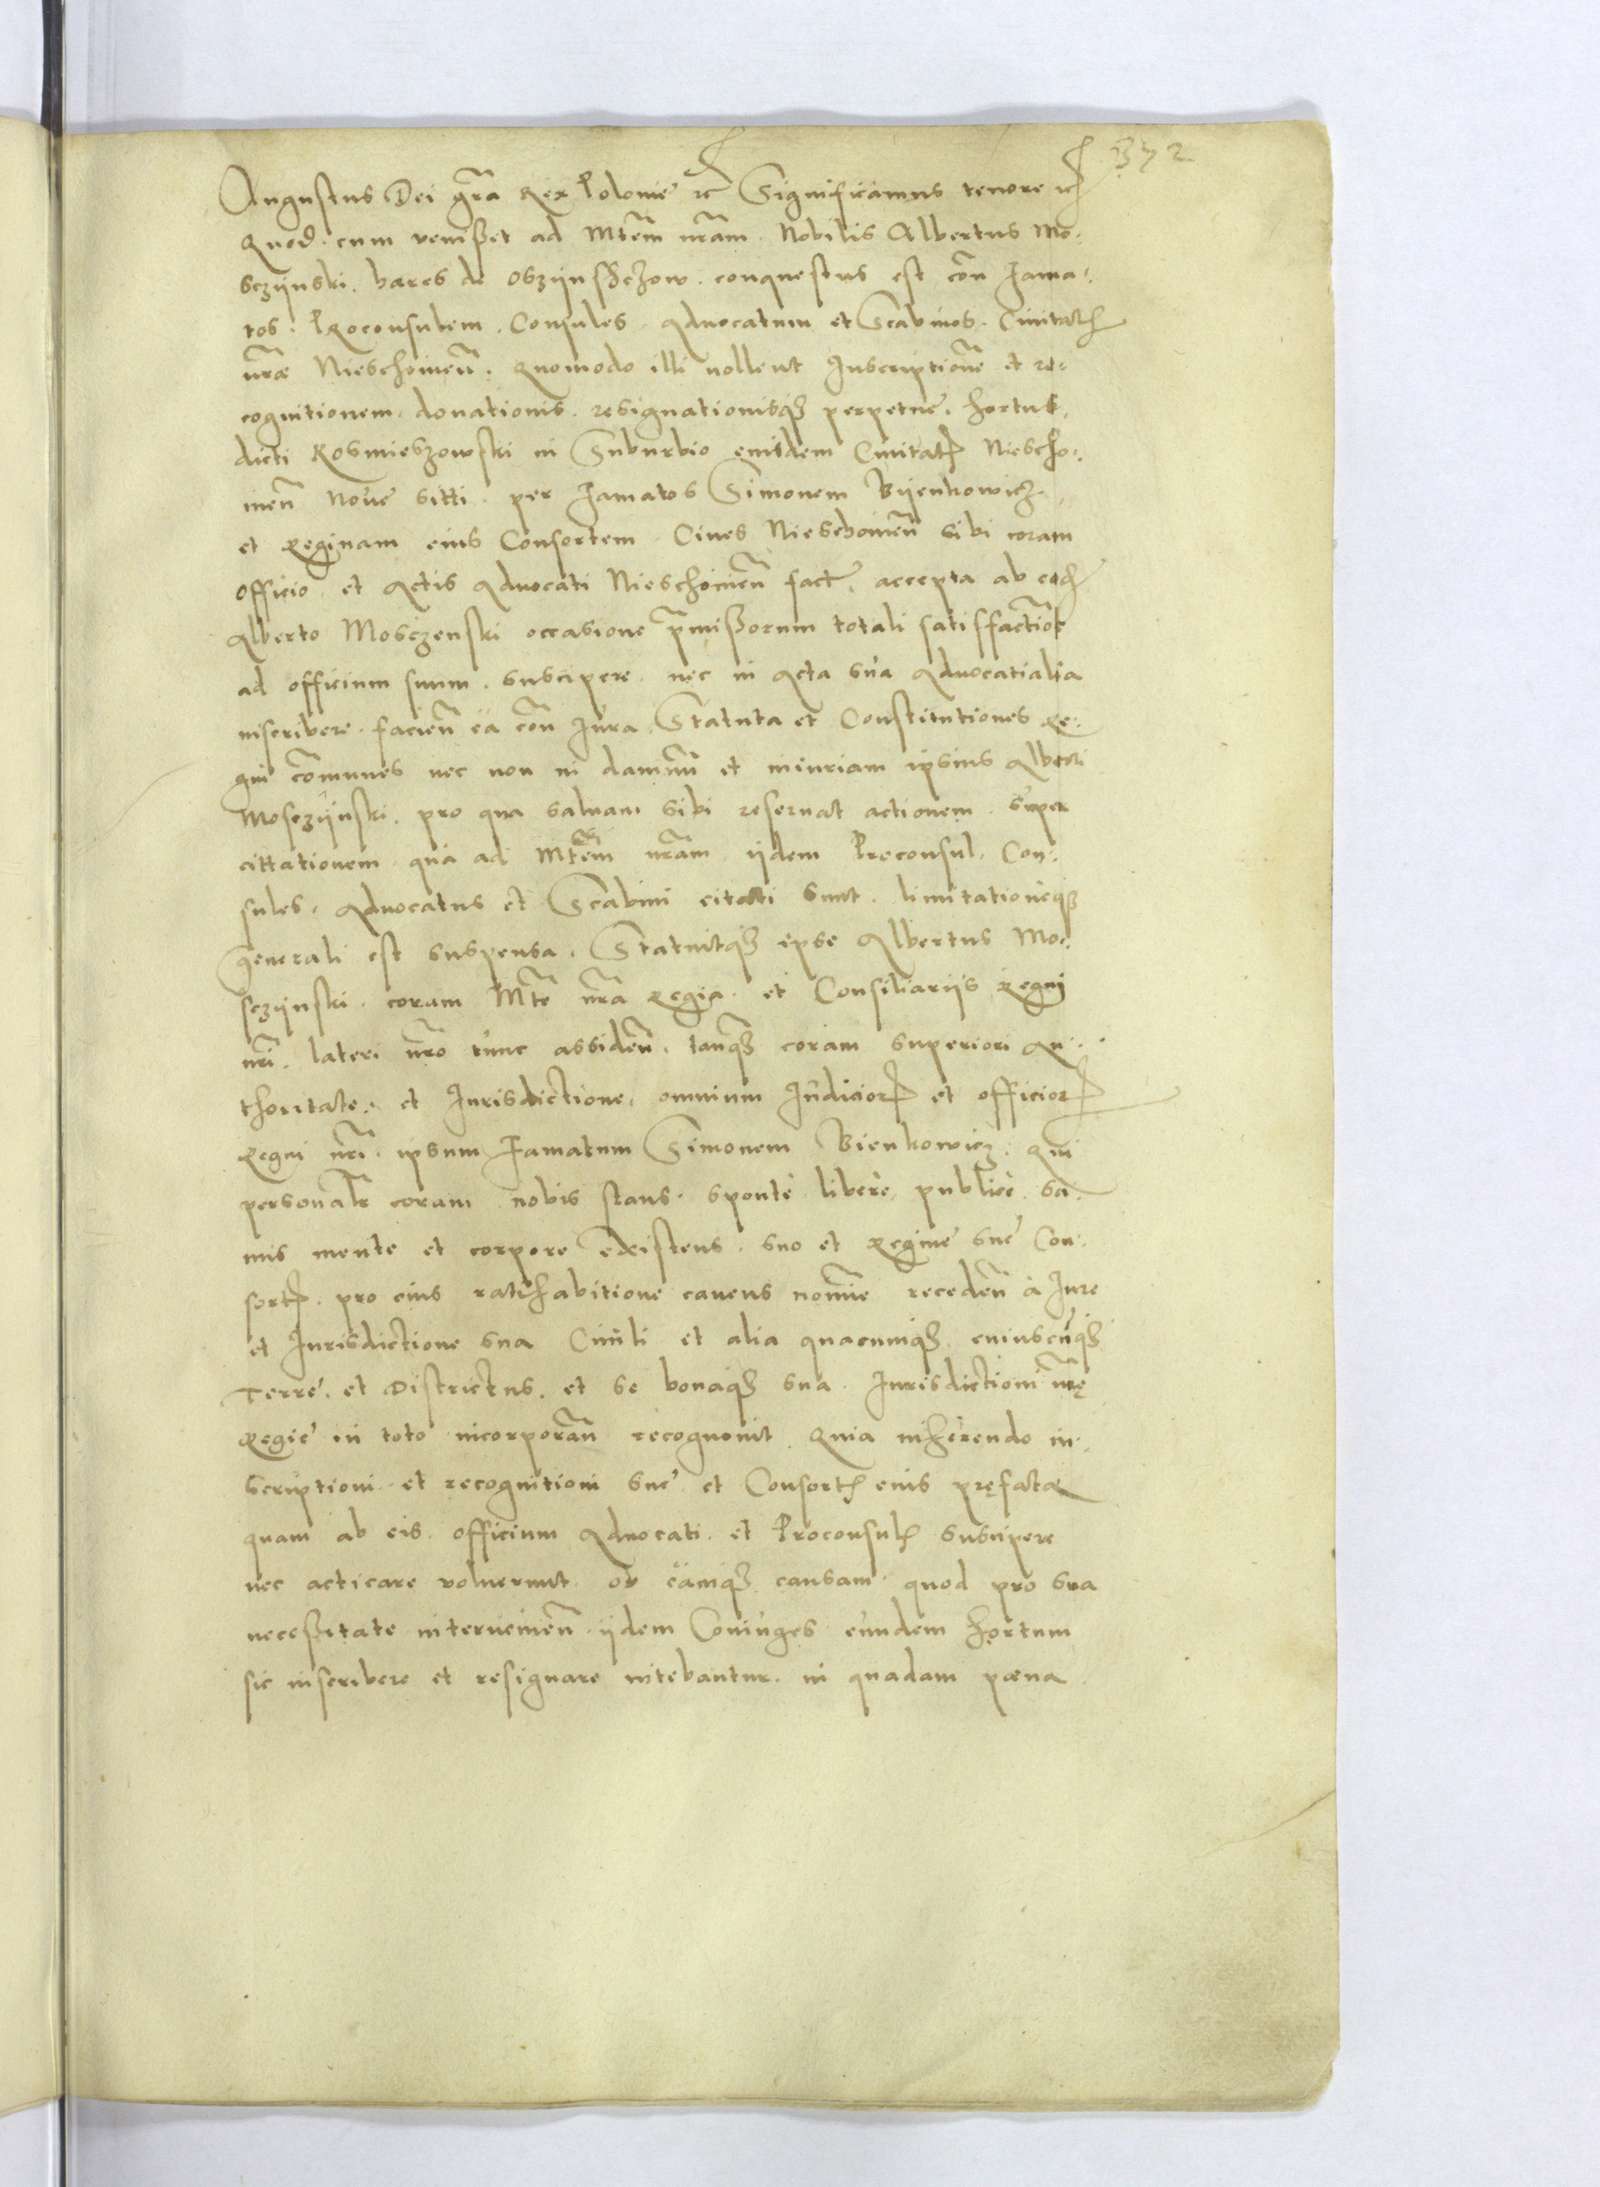 372
Augustus Dei gra Rex Polonie etc Significamus tenore etc
Quod cum venisset ad Mtem nram Nobilis Albertus Mo-
sczijnski hæres de conquestus est con Fama-
tos Proconsulem Consules Advocatum et Scabinos Civitatis
nræ Nieschovien Quomodo illi nollent Inscriptione et re-
cognitionem donationis resignationisq perpetue hortus
dicti Rosmieszowski in Suburbio eiusdem Civitatis Niescho-
vien Nove sitti per Famatos Simonem Bijenkowicz
et Reginam eius Consortem Cives Nieschovien sibi coram
Officio et Actis Advocati Nieschovien fact accepta ab eod
Alberto Mosczenski occasione pmissorum totali satisfactioe
ad officium suum suscipere nec in Acta sua Advocatialia
inscribere facien ea con Iura Statuta et Constitutiones Re-
gni comunes nec non in damnu et iniuriam ipsius Alberti
Mosczijnski pro qua salvam sibi reservat actionem super
cittationem qua ad Mtem nram ijdem Proconsul Con-
sules Advocatus et Scabini citati sunt limitationeq
generali est suspensa Statuitq ipse Albertus Mo-
sczijnski coram Mte nra Regia et Consiliarijs Regni
nri lateri nro tunc assiden tanq coram superiori Au-
thoritate et Iurisdictione omnium Iudicior et officior
Regni nri ipsum Famatum Simonem Bienkowicz Qui
personalr coram nobis stans sponte libere publice sa-
nus mente et corpore existens suo et Regine sue Con-
sortis pro eius ratihabitione cavens nomine receden à Iure
et Iurisdictione sua Civili et alia quacunq cuiuscunq
Terre et Districtus et se bonaq sua Iurisdictioni nrę
Regie in toto incorporan recognovit Quia inherendo in-
scriptioni et recognitioni sue et Consortis eius pręfatæ
quam ab eis officium Advocati et Proconsulis suscipere
nec acticare voluerunt ob eamq causam quod pro sua
necessitate intervenien ijdem Coniuges eundem hortum
sic inscribere et resignare nitebantur in quadam pæna